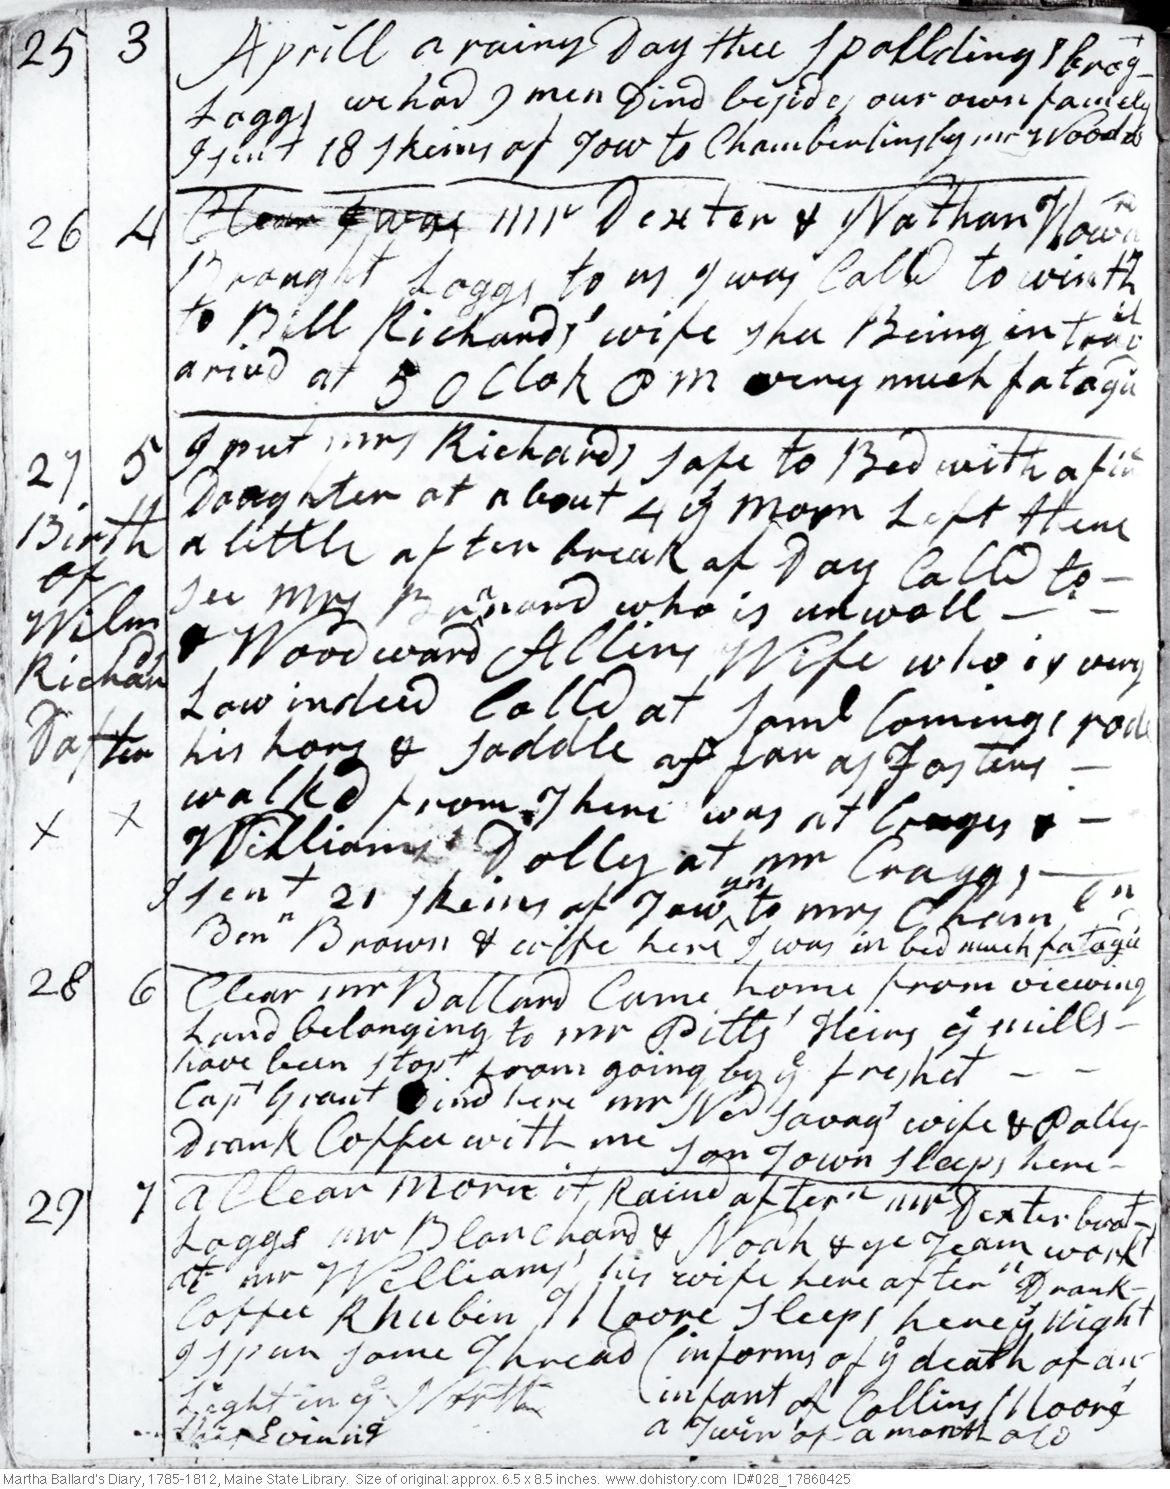 25 3 Aprill a rainy Day thee Spalldings brot
Loggs we had 9 men Dind besides our own famely
I sent 18 skeins of Tow to Chamberlins by mr Woodd
26 4 Clear I was mr Dexter & Nathan
Brought Loggs to us I was Calld to winth
to Bill Richards' wife shee Being in travil
arivd at 5 O Clok P M very much fatagu
27 5 I put mrs Richards safe to Bed with a fin
Daughter at about 4 ye morn Left there
Birth
a little after break of Day Calld to –
of
see Mrs who is unwell – –
Wilm
& Woodward Allins Wife who is very
Richard
Low indeed Calld at Saml Comings rode
Dafter
his hors & saddle as far as Fosters –
walkd from There was at Crages & –
x x
Williams' Dolly at mr Craggs —
I sent 21 skeins of Tow yn to mrs Chamln
Benn Brown & wife here I was in bed much fatagu
28 6 Clear mr Ballard Came home from viewing
Land belonging to mr Pitts' Heirs ye mills –
have been stopt from going by ye freshet – –
Capt Grant Dind here mr Ned Savag' wife & Polly
Drank Coffee with me son Town sleeps here –
29 7 a Clear morn it Raind aftern mr Dexter brot
Loggs mr Blanchard & Noah & ye Team workt
at mr Williams' his wife here aftern Drank –
Coffee Rhubin Moore sleeps here ye night
I spun some Thread (informs of ye death of an
Light in ye North (infant of Collins Moors'
this Evining a Twin of a month old
Martha Ballard's Diary, 1785-1812, Maine State Library. Size of original: approx. 6.5 x 8.5 inches. www.dohistory.com ID#028_17860425